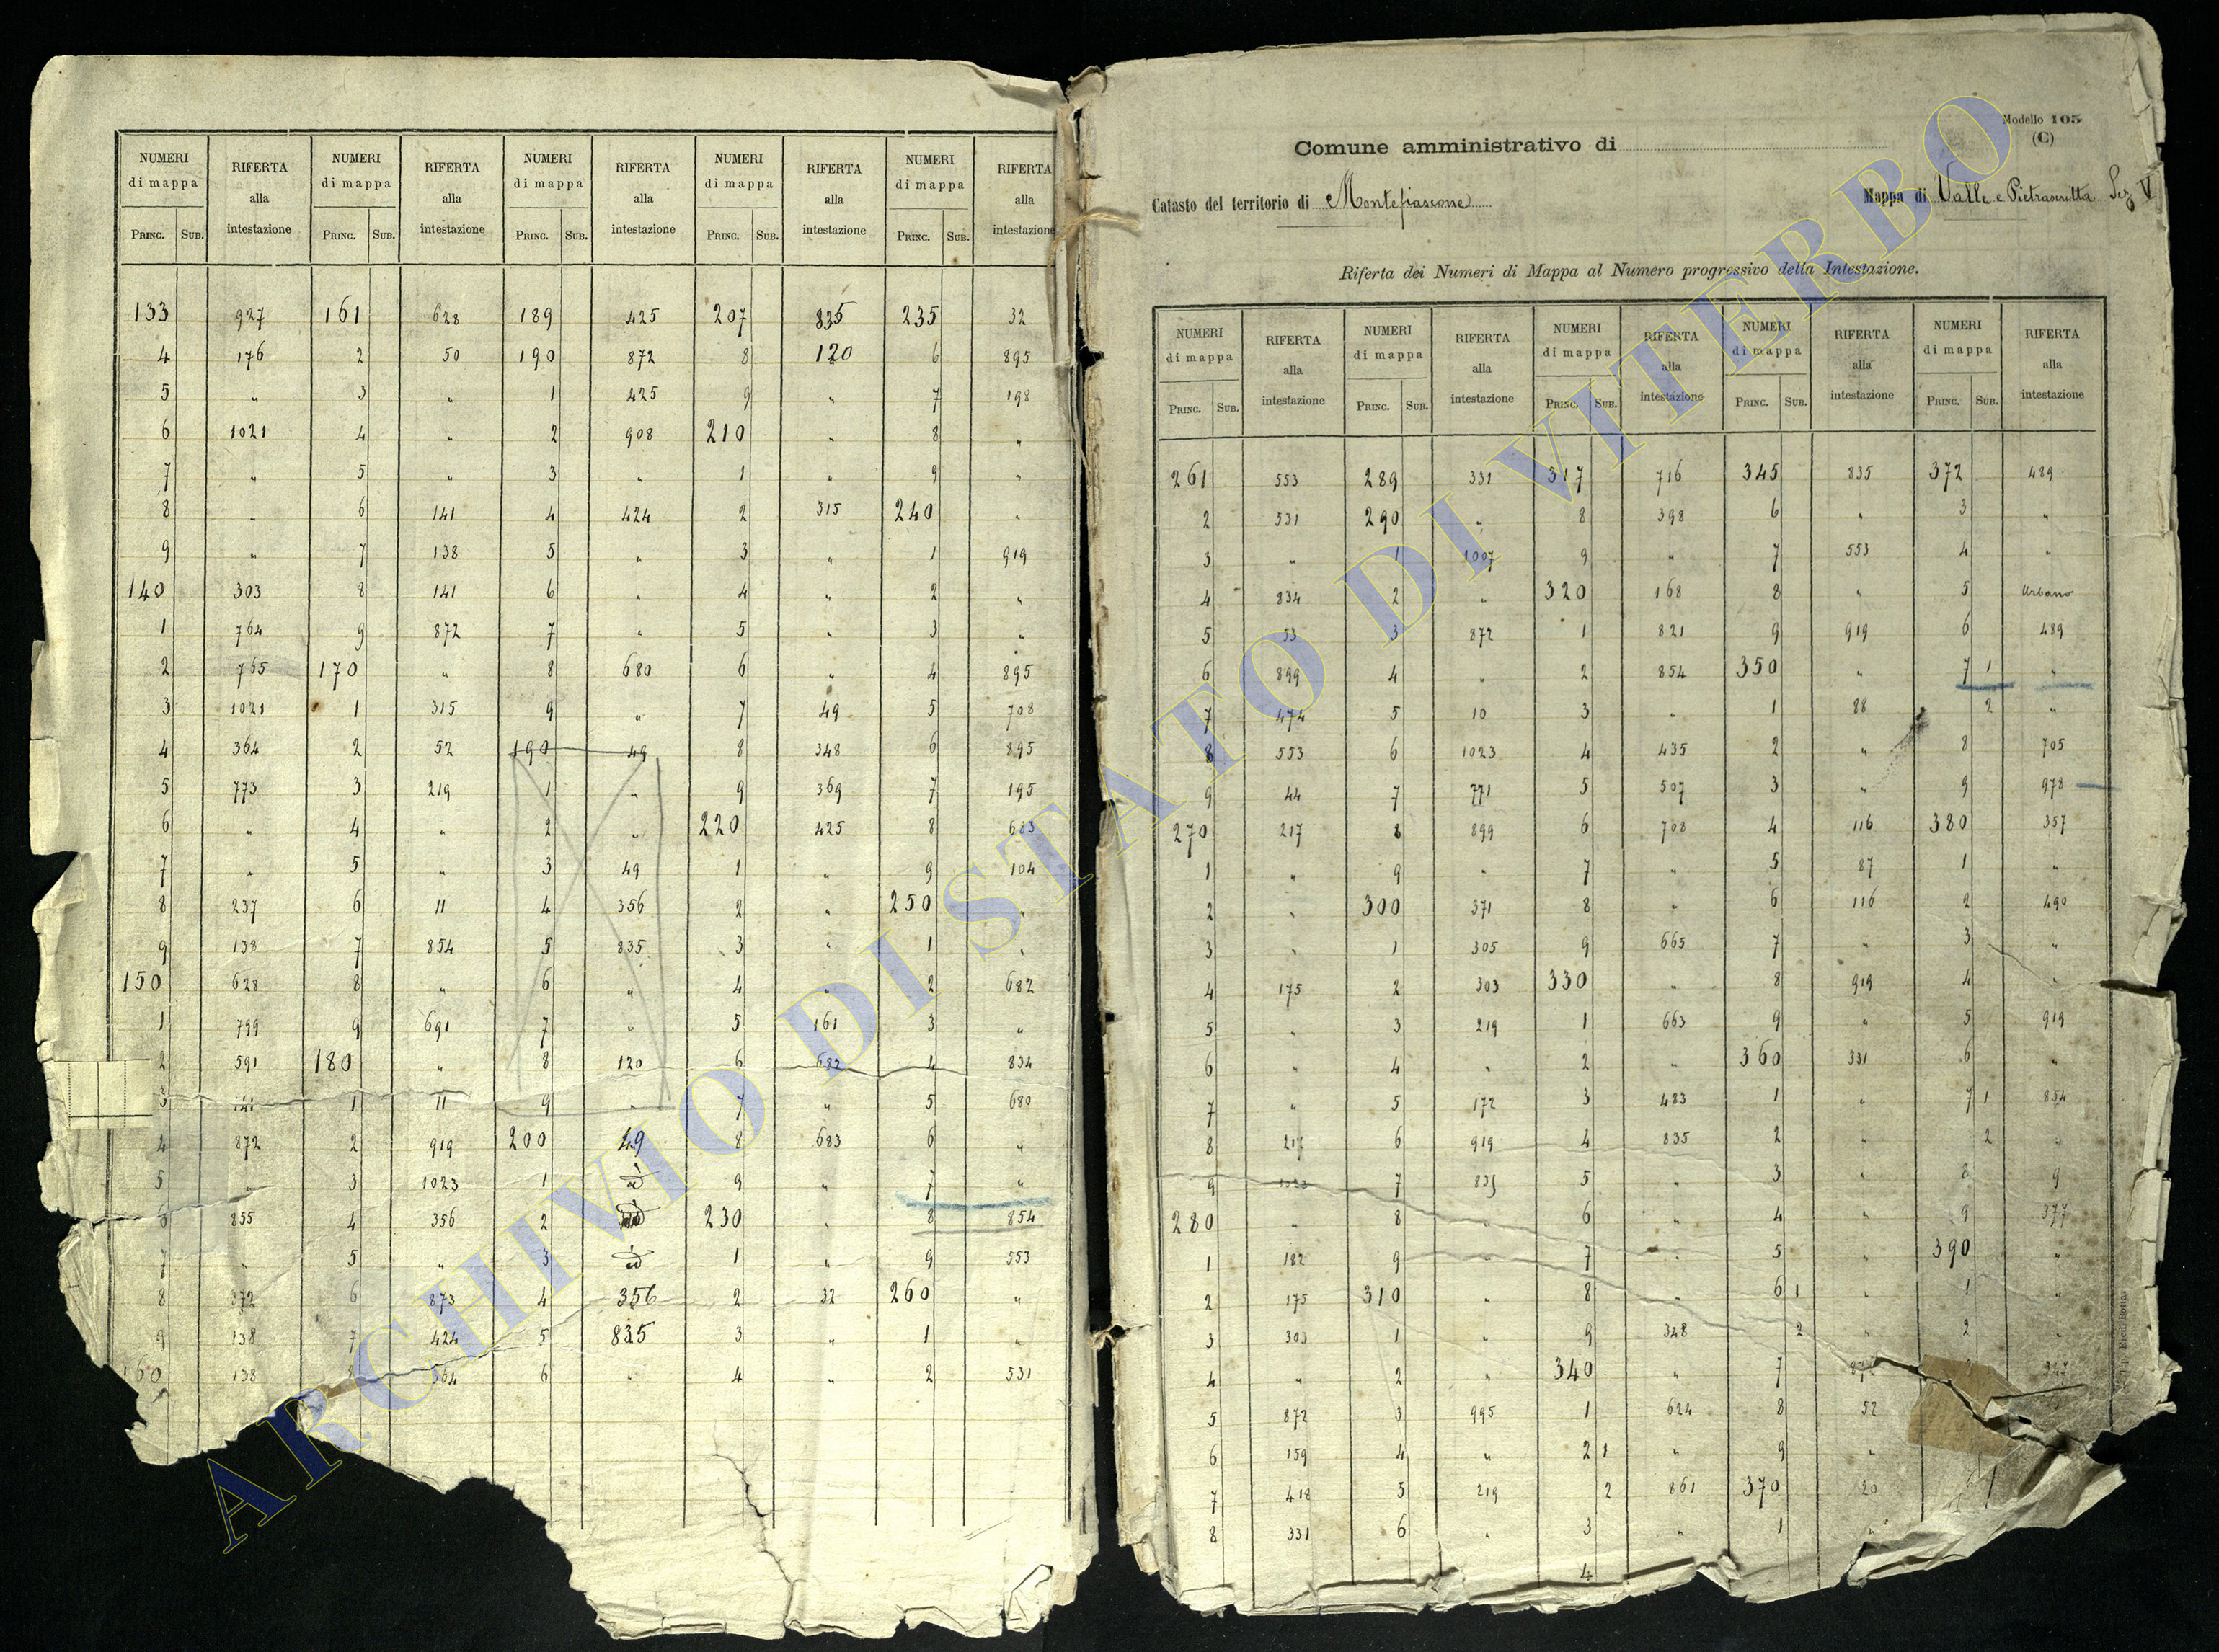 NUMERI di mappa RIFERTA alla intestazione NUMERI di mappa RIFERTA alla intestazione NUMERI di mappa RIFERTA alla intestazione NUMERI di mappa RIFERTA alla intestazione NUMERI di mappa RIFERTA alla intestazione
PRINC. SUB. PRINC. SUB. PRINC. SUB. PRINC. SUB. PRINC. SUB.
133 927 161 628 189 425 207 835 235 32
4 176 2 50 190 872 8 120 6 895
5 " 3 " 1 425 9 " 7 198
6 1021 4 " 2 908 210 " 8 "
7 " 5 " 3 " 1 " 9 "
8 " 6 141 4 424 2 315 240 "
9 " 7 138 5 " 3 " 1 919
140 303 8 141 6 " 4 " 2 "
1 764 9 872 7 " 5 " 3 "
2 765 170 " 8 680 6 " 4 895
3 1021 1 315 9 " 7 49 5 708
4 364 2 52 190 49 8 348 6 895
5 773 3 219 1 " 9 369 7 195
6 " 4 " 2 " 220 425 8 683
7 " 5 " 3 49 1 " 9 104
8 237 6 11 4 356 2 " 250 "
9 138 7 854 5 835 3 " 1 "
150 628 8 " 6 " 4 " 2 682
1 799 9 691 7 " 5 161 3 "
2 591 180 " 8 120 6 682 4 834
3 141 1 11 9 " 7 " 5 680
4 872 2 919 200 49 8 683 6 "
5 " 3 1023 1 id 9 " 7 "
6 855 4 356 2 id 230 " 8 854
7 " 5 " 3 id 1 " 9 553
8 872 6 873 4 356 2 32 260 "
9 138 7 424 5 835 3 " 1 "
160 138 8 364 6 " 4 " 2 531
Modello 105
(C)
Comune amministrativo di
Catasto del territorio di Montefiascone Mappa di Valle e Pietrascritta Sez V
Riferta dei Numeri di Mappa al Numero progressivo della Intestazione.
NUMERI di mappa RIFERTA alla intestazione NUMERI di mappa RIFERTA alla intestazione NUMERI di mappa RIFERTA alla intestazione NUMERI di mappa RIFERTA alla intestazione NUMERI di mappa RIFERTA alla intestazione
PRINC. SUB. PRINC. SUB. PRINC. SUB. PRINC. SUB. PRINC. SUB.
261 553 289 331 317 716 345 835 372 489
2 531 290 " 8 398 6 " 3 "
3 " 1 1007 9 " 7 553 4 "
4 834 2 " 320 168 8 " 5 Urbano
5 53 3 872 1 821 9 919 6 489
6 899 4 " 2 854 350 " 7 1 "
7 474 5 10 3 " 1 88 2 "
8 553 6 1023 4 435 2 " 8 705
9 44 7 771 5 507 3 " 9 978
270 217 8 899 6 708 4 116 380 357
1 " 9 " 7 " 5 87 1 "
2 " 300 371 8 " 6 116 2 490
3 " 1 305 9 665 7 " 3 "
4 175 2 303 330 " 8 919 4 "
5 " 3 219 1 663 9 " 5 919
6 " 4 " 2 " 360 331 6 "
7 " 5 172 3 483 1 " 7 1 854
8 217 6 919 4 835 2 " 2 "
9 1023 7 835 5 " 3 " 8 9
280 " 8 " 6 " 4 " 9 377
1 182 9 " 7 " 5 " 390 "
2 175 310 " 8 " 6 1 " 1 "
3 303 1 " 9 348 2 " 2 "
4 " 2 " 340 " 7
5 872 3 995 1 624 8 52
6 159 4 " 2 1 " 9 "
7 418 5 219 2 861 370 20
8 331 6 " 3 " 1 "
4
ARCHIVIO DI STATO DI VITERBO